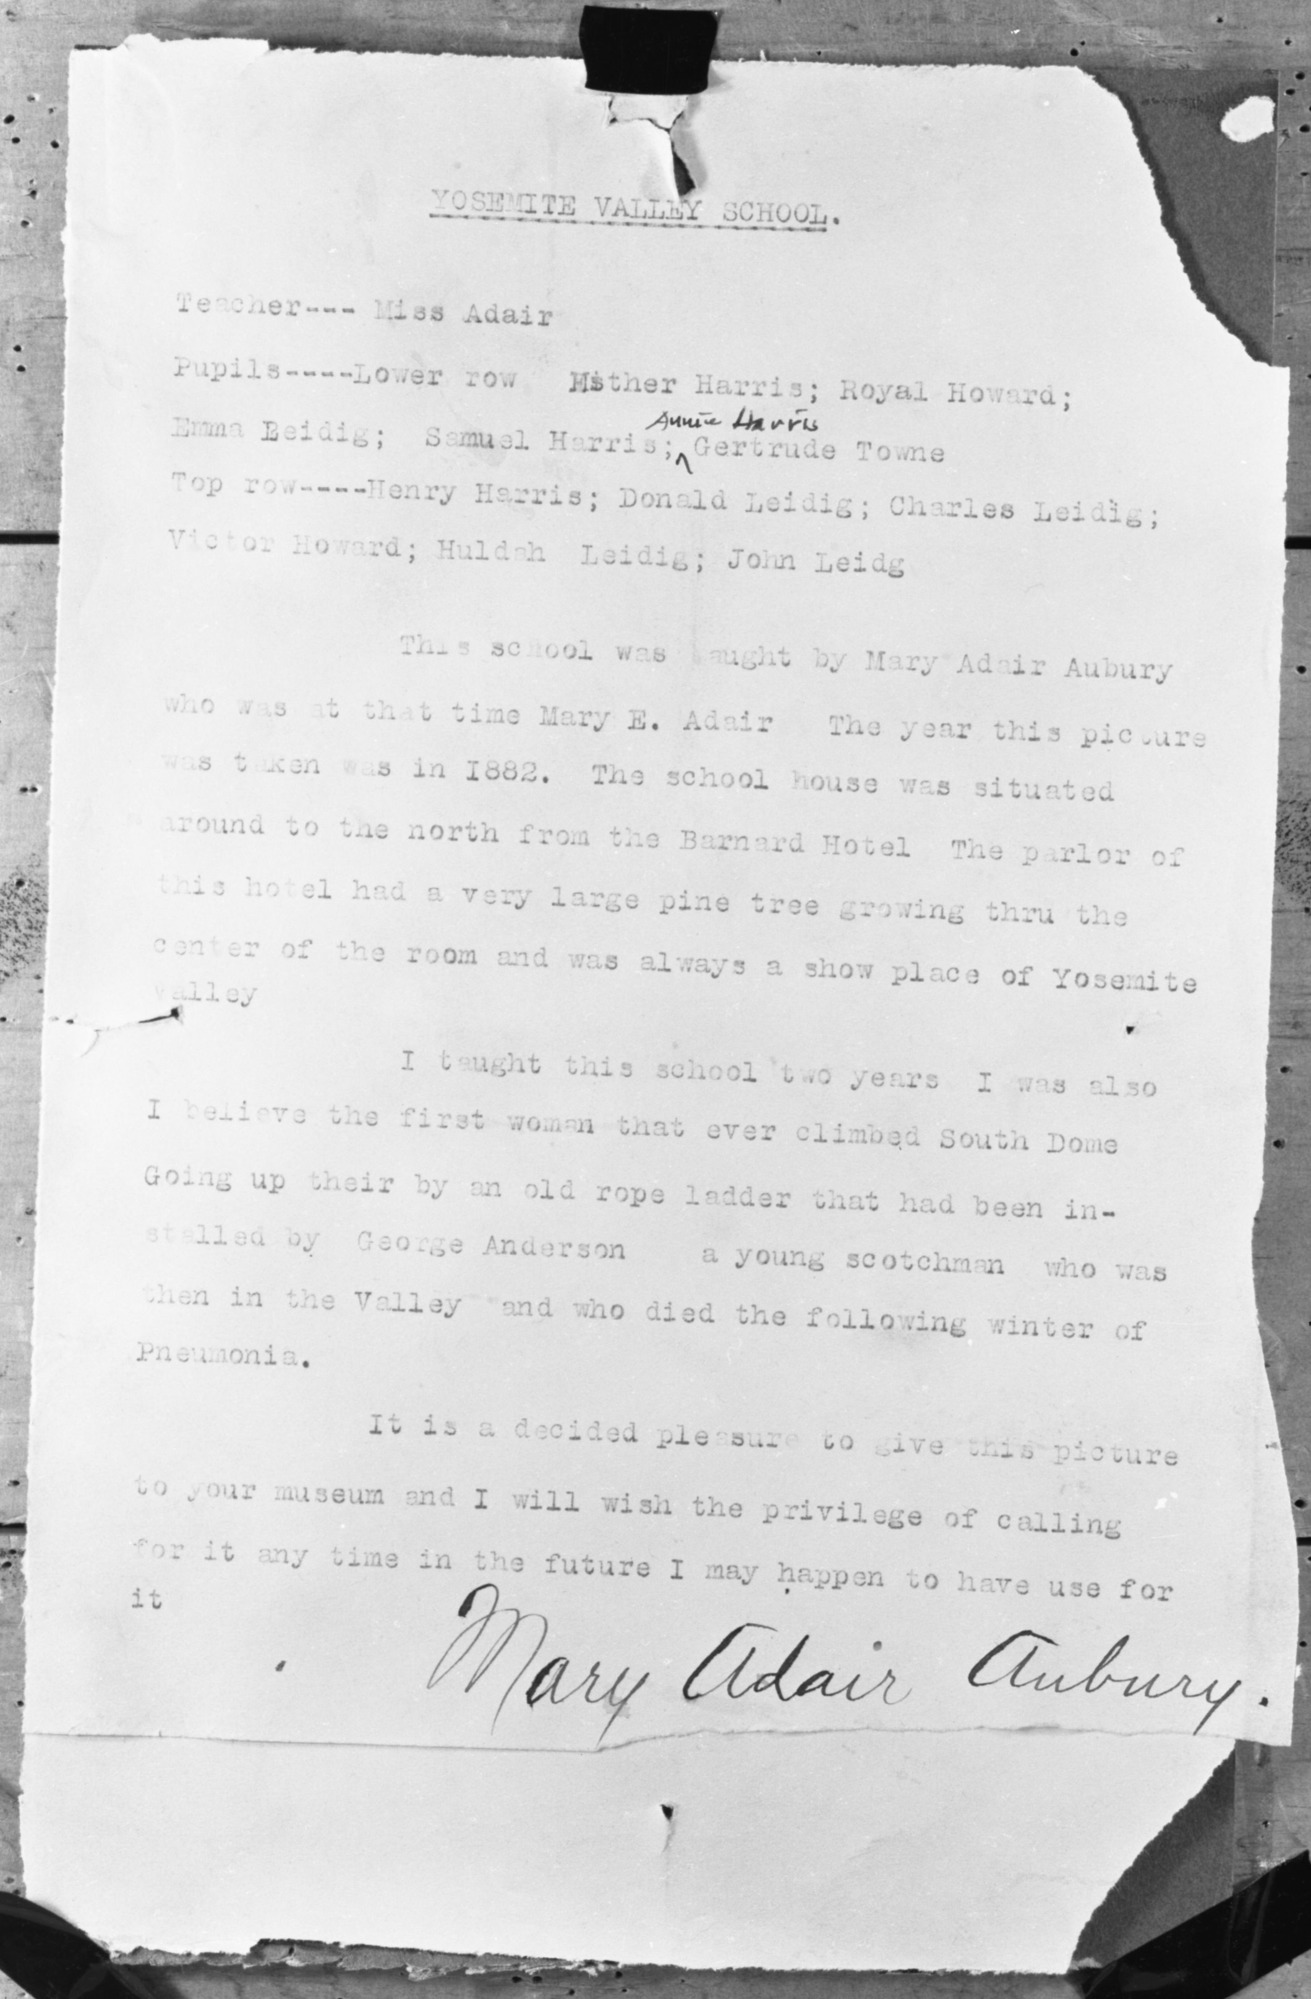 YOSEMITE VALLEY SCHOOL.
Teacher--- Miss Adair
Pupils----Lower row Esther Harris; Royal Howard;
Annie Harris
Emma Leidig; Samuel Harris; ^ Gertrude Towne
Top row----Henry Harris; Donald Leidig; Charles Leidig;
Victor Howard; Huldah Leidig; John Leidg
This school was taught by Mary Adair Aubury
who was at that time Mary E. Adair The year this picture
was taken was in 1882. The school house was situated
around to the north from the Barnard Hotel The parlor of
this hotel had a very large pine tree growing thru the
center of the room and was always a show place of Yosemite
Valley
I taught this school two years I was also
I believe the first woman that ever climbed South Dome
Going up their by an old rope ladder that had been in-
stalled by George Anderson a young scotchman who was
then in the Valley and who died the following winter of
Pneumonia.
It is a decided pleasure to give this picture
to your museum and I will wish the privilege of calling
for it any time in the future I may happen to have use for
it
Mary Adair Aubury.